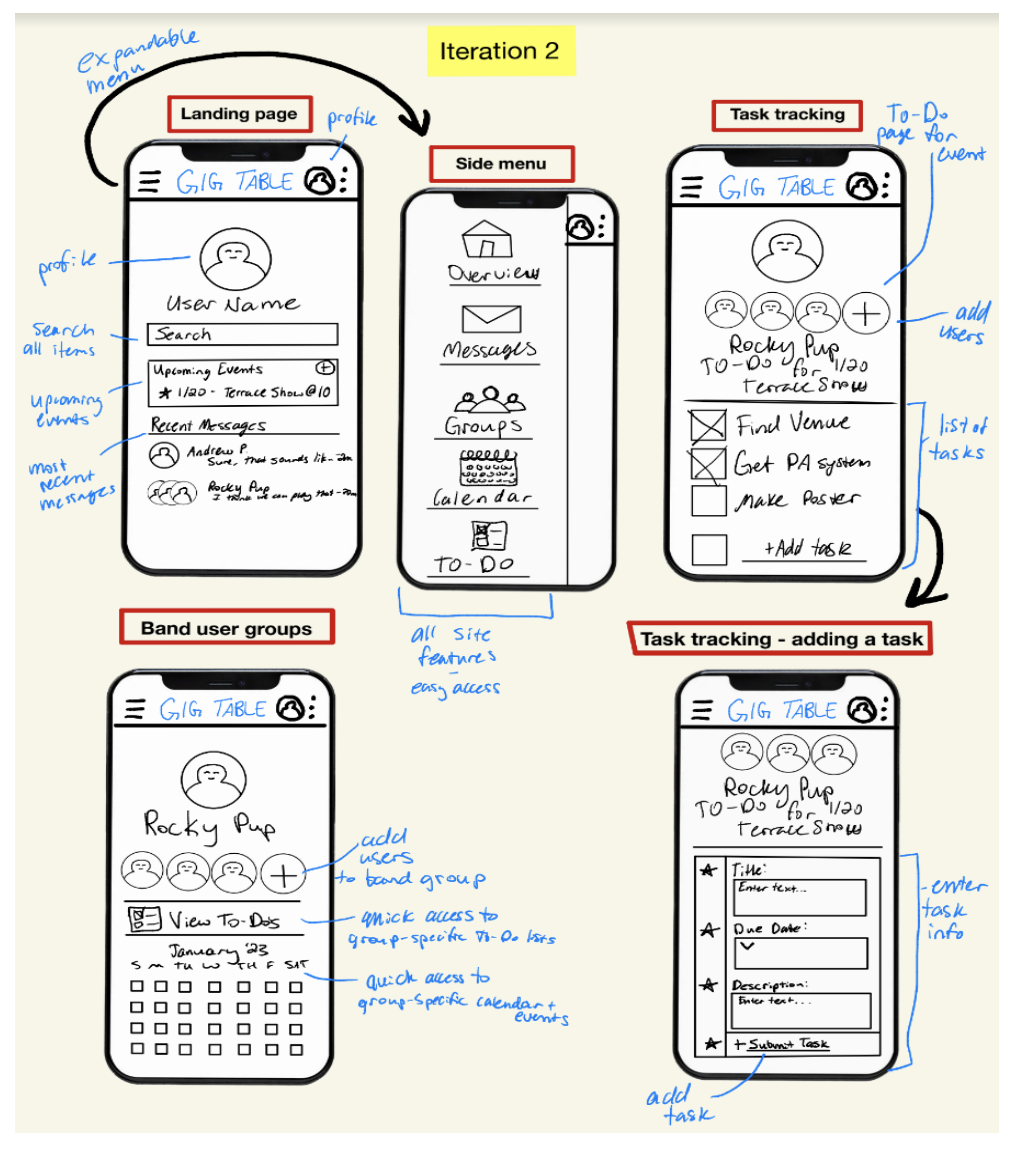 Iteration 2
expandable
menu
Landing page
profile
GIG TABLE
profile
User Name
Search
all items
Search
Upcoming Events
★ 1/20 - Terrace Show @10
upcoming
events
Recent Messages
most
recent
messages
Andrew P.
Sure, that sounds lik- 2m
Rocky Pup
I think we can play that -20m
Side menu
Overview
Messages
Groups
Calendar
TO-DO
all site
features
-
easy access
Task tracking
To-Do
page for
event
GIG TABLE
add
users
Rocky Pup
TO-DO for 1/20
Terrace Show
list of
tasks
Find Venue
Get PA system
Make Poster
+Add task
Band user groups
GIG TABLE
Rocky Pup
add
users
to band group
View To-Dos
quick access to
group-specific To-Do lists
January '23
S M TU W TH F SAT
quick access to
group-specific calendar +
events
Task tracking - adding a task
GIG TABLE
Rocky Pup
TO-DO for 1/20
Terrace Show
Title:
Enter text...
Due Date:
Description:
Enter text...
+ Submit Task
enter
task
info
add
task